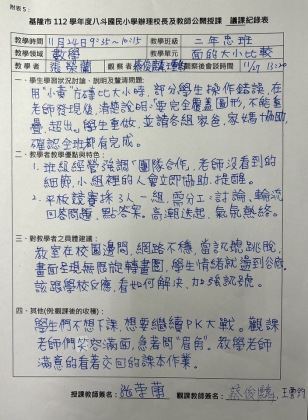 附表5：
基隆市 112 學年度八斗國民小學辦理校長及教師公開授課 議課紀錄表
教學時間 11月24日9:35~10:15 教學班級 二年忠班
教學領域 數學 教學單元 面的大小比較
教學者 張榮蘭 觀察者 蔡俊驥、王 觀察後會談時間 11/27 13:20
一、學生學習狀況討論、說明及釐清問題：
用"小黃"方磚比大小時，部分學生操作錯誤，在
老師發現後，清楚說明：要完全覆蓋圖形，不能重
疊、超出。學生重做，並請各組家爸、家媽協助，
確認全班都有完成。
二、教學者教學優點與特色：
1. 班級經營強調「團隊合作」，老師沒看到的
細節，小組裡的人會立即協助、提醒。
2. 平板競賽採3人一組，需分工：討論、輪流
回答問題、點答案。高潮迭起，氣氛熱絡。
三、對教學者之具體建議：
教室在校園邊間，網路不穩，當訊號跳脫，
畫面呈現無限旋轉畫圈，學生情緒就盪到谷底，
該跟學校反應，看如何解決、加強訊號。
四、其他(例:觀課後的收穫)：
學生們不想下課，想要繼續PK大戰。觀課
老師們笑容滿面，急著問"眉角"。教學老師
滿意的看著交回的課本作業。
授課教師簽名： 張榮蘭 觀課教師簽名： 蔡俊驥、王